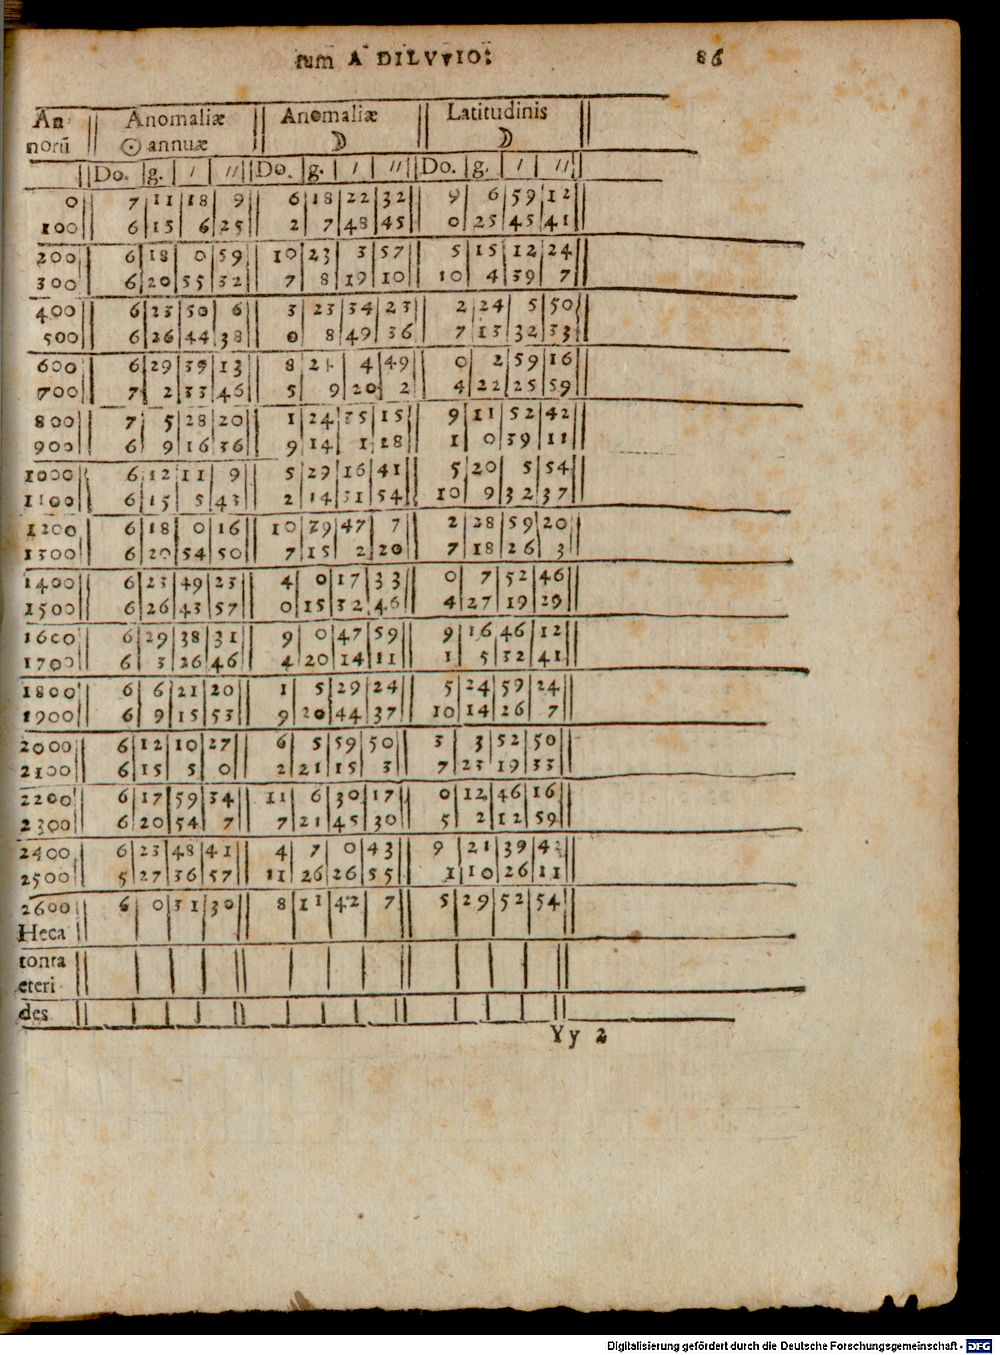 tum A DILVVIO: 86
An Anomaliæ Anomaliæ Latitudinis
norũ ☉ annuæ ☽ ☽
Do. g. / // Do. g. / // Do. g. / //
0 7 11 18 9 6 18 22 32 9 6 59 12
100 6 15 6 25 2 7 48 45 0 25 45 41
200 6 18 0 59 10 23 3 57 5 15 12 24
300 6 20 55 32 7 8 19 10 10 4 39 7
400 6 23 50 6 3 23 34 23 2 24 5 50
500 6 26 44 38 0 8 49 36 7 13 32 33
600 6 29 39 13 8 24 4 49 0 2 59 16
700 7 2 33 46 5 9 20 2 4 22 25 59
800 7 5 28 20 1 24 35 15 9 11 52 42
900 6 9 16 36 9 14 1 28 1 0 39 11
1000 6 12 11 9 5 29 16 41 5 20 5 54
1100 6 15 5 43 2 14 31 54 10 9 32 37
1200 6 18 0 16 10 29 47 7 2 28 59 20
1300 6 20 54 50 7 15 2 20 7 18 26 3
1400 6 23 49 23 4 0 17 33 0 7 52 46
1500 6 26 43 57 0 15 32 46 4 27 19 29
1600 6 29 38 31 9 0 47 59 9 16 46 12
1700 6 3 26 46 4 20 14 11 1 5 32 41
1800 6 6 21 20 1 5 29 24 5 24 59 24
1900 6 9 15 53 9 20 44 37 10 14 26 7
2000 6 12 10 27 6 5 59 50 3 3 52 50
2100 6 15 5 0 2 21 15 3 7 23 19 33
2200 6 17 59 34 11 6 30 17 0 12 46 16
2300 6 20 54 7 7 21 45 30 5 2 12 59
2400 6 23 48 41 4 7 0 43 9 21 39 42
2500 5 27 36 57 11 26 26 55 1 10 26 11
2600 6 0 31 30 8 11 42 7 5 29 52 54
Heca
tonta
eteri
des
Yy 2
Digitalisierung gefördert durch die Deutsche Forschungsgemeinschaft - DFG